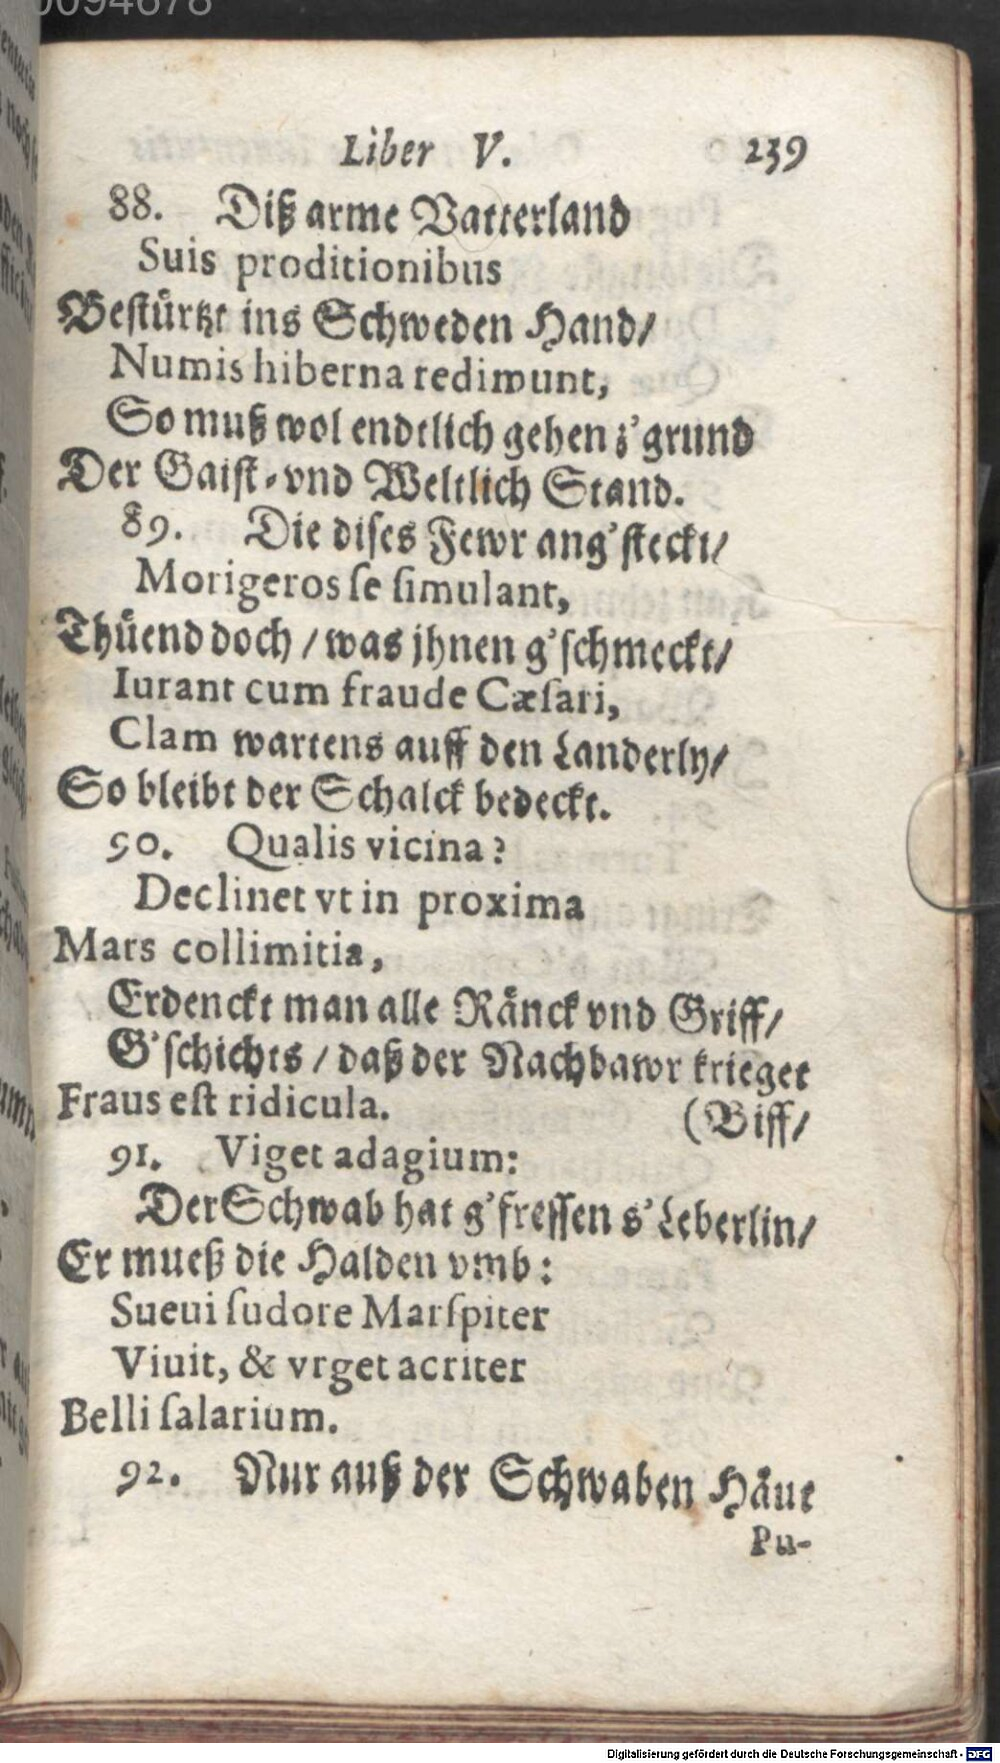 Liber V. 239
88. Diß arme Vatterland
Suis proditionibus
Bestürtzt ins Schweden Hand/
Numis hiberna redimunt,
So muß wol endtlich gehen z'grund
Der Gaist-vnd Weltlich Stand.
89. Die dises Fewr ang'steckt/
Morigeros se simulant,
Thüend doch / was jhnen g'schmeckt/
Iurant cum fraude Cæsari,
Clam wartens auff den Landerly/
So bleibt der Schalck bedeckt.
90. Qualis vicina?
Declinet vt in proxima
Mars collimitia,
Erdenckt man alle Ränck vnd Griff/
G'schichts / daß der Nachbawr krieget
Fraus est ridicula. (Biff/
91. Viget adagium:
Der Schwab hat g'fressen s'Leberlin/
Er mueß die Halden vmb:
Sueui sudore Marspiter
Viuit, & vrget acriter
Belli salarium.
92. Nur auß der Schwaben Häut
Pu-
Digitalisierung gefördert durch die Deutsche Forschungsgemeinschaft - DFG